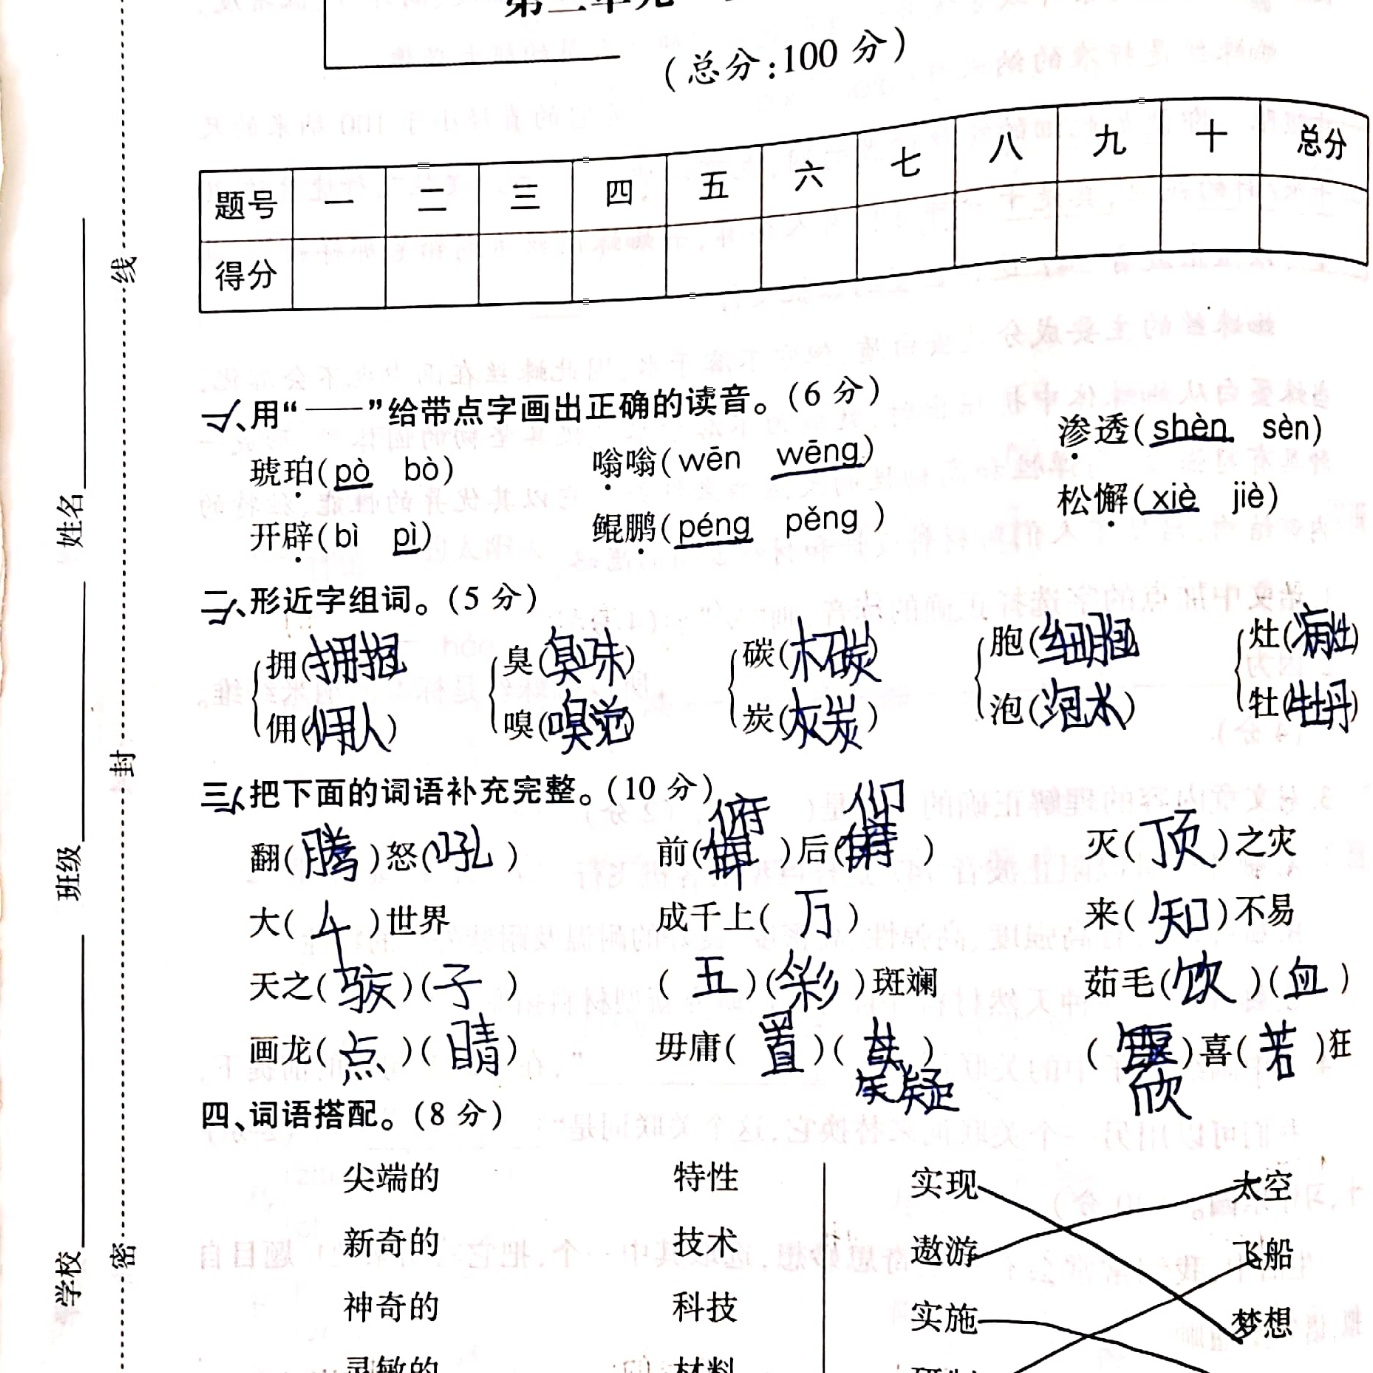 (总分:100 分)
题号 一 二 三 四 五 六 七 八 九 十 总分
得分
一、用“——”给带点字画出正确的读音。(6 分)
琥珀(pò bò) 嗡嗡(wēn wēng) 渗透(shèn sèn)
开辟(bì pì) 鲲鹏(péng pěng) 松懈(xiè jiè)
二、形近字组词。(5 分)
拥(拥抱) 臭(臭味) 碳(木碳) 胞(细胞) 灶(病灶)
佣(佣人) 嗅(嗅觉) 炭(灰炭) 泡(泡水) 牡(牡丹)
三、把下面的词语补充完整。(10 分)
翻(腾)怒(吼) 前(俯)后(仰) 灭(顶)之灾
大(千)世界 成千上(万) 来(知)不易
天之(骄)(子) (五)(彩)斑斓 茹毛(饮)(血)
画龙(点)(睛) 毋庸(置)(疑) (欣)喜(若)狂
四、词语搭配。(8 分)
尖端的 特性 实现 太空
新奇的 技术 遨游 飞船
神奇的 科技 实施 梦想
灵敏的 材料 研制
学校 班级 姓名
密 封 线